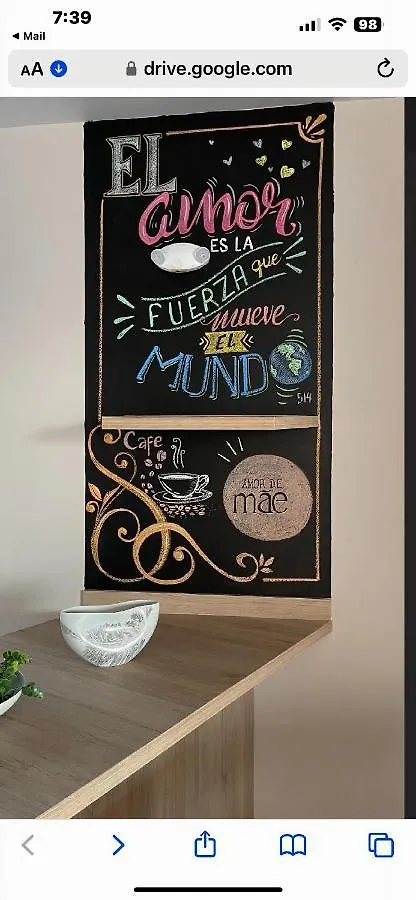 7:39
98
Mail
AA
drive.google.com
EL
amor
ES LA
FUERZA que
mueve
EL
MUNDO
514
Cafe
AMOR DE
mãe